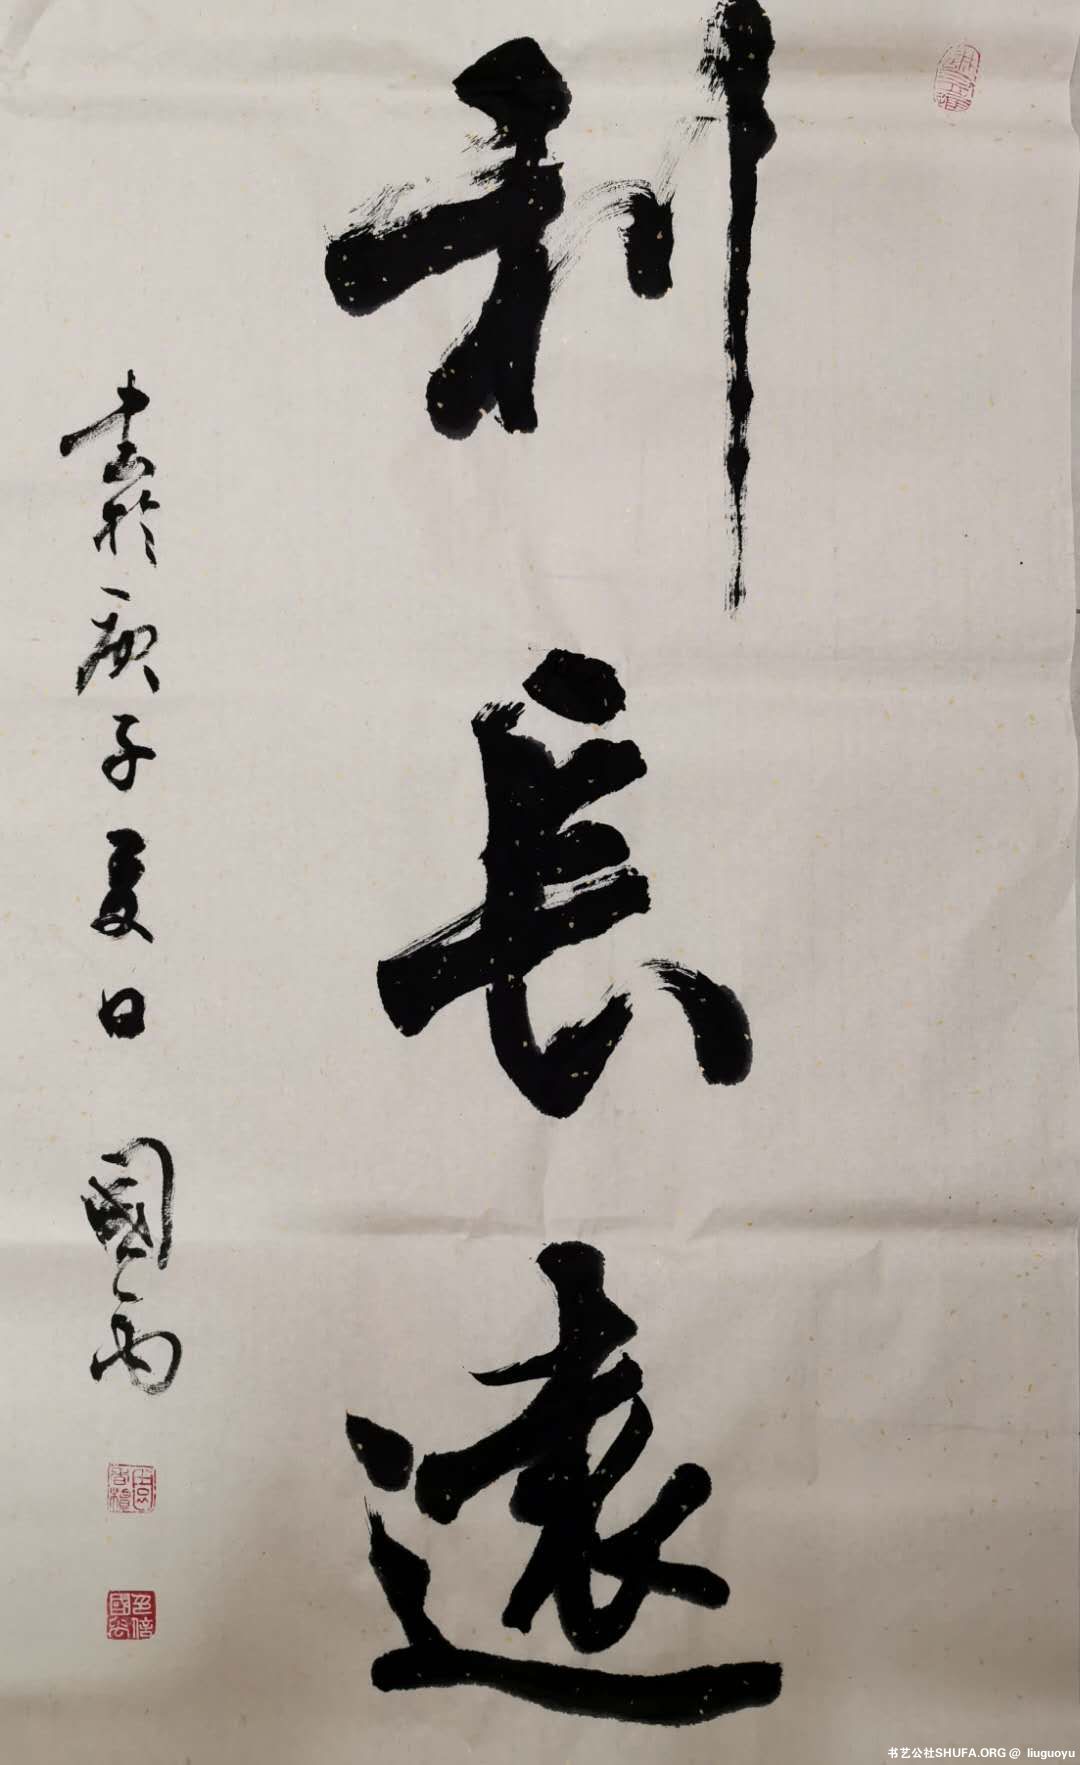 利長遠
書於庚子夏日 國雨
書艺公社SHUFA.ORG @ liuguoyu